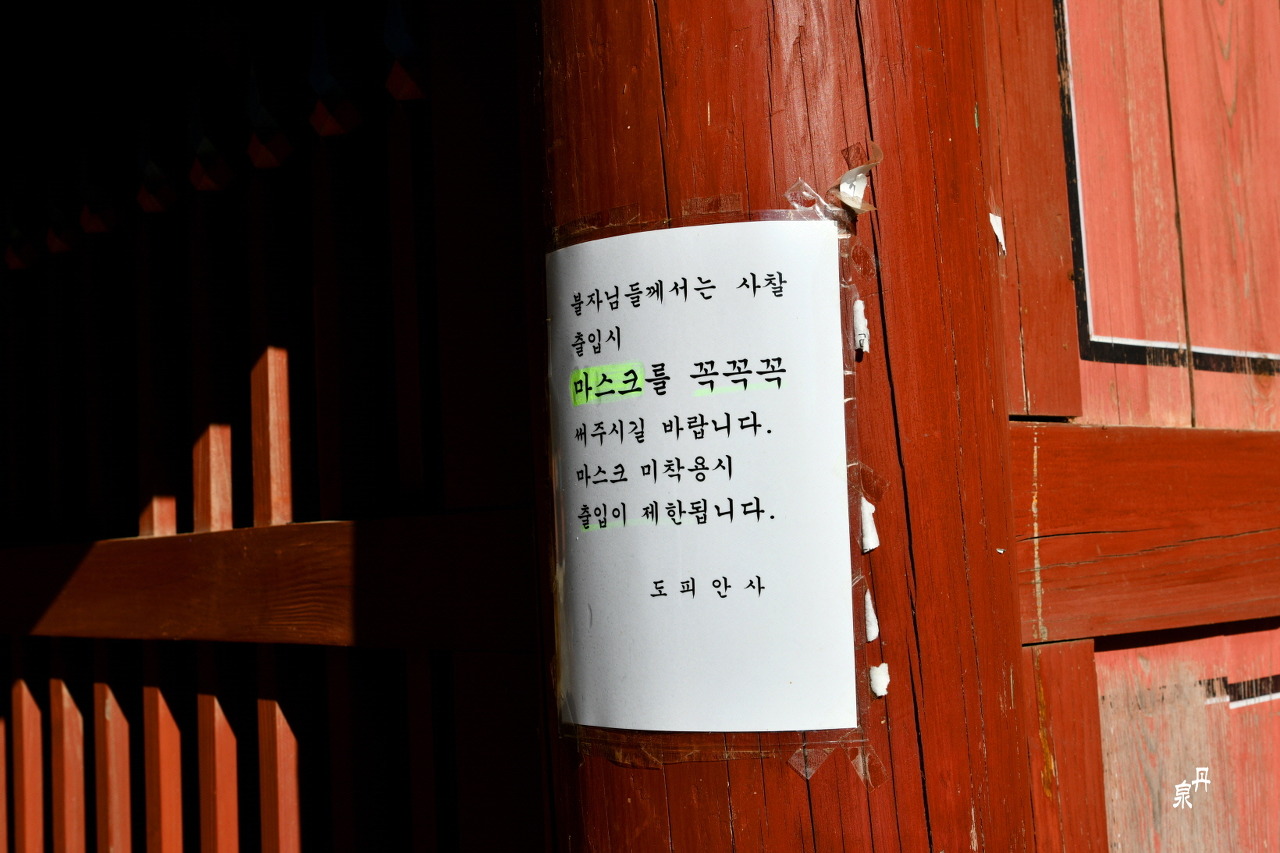 불자님들께서는 사찰
출입시
마스크를 꼭꼭꼭
써주시길 바랍니다.
마스크 미착용시
출입이 제한됩니다.
도 피 안 사
丹
泉